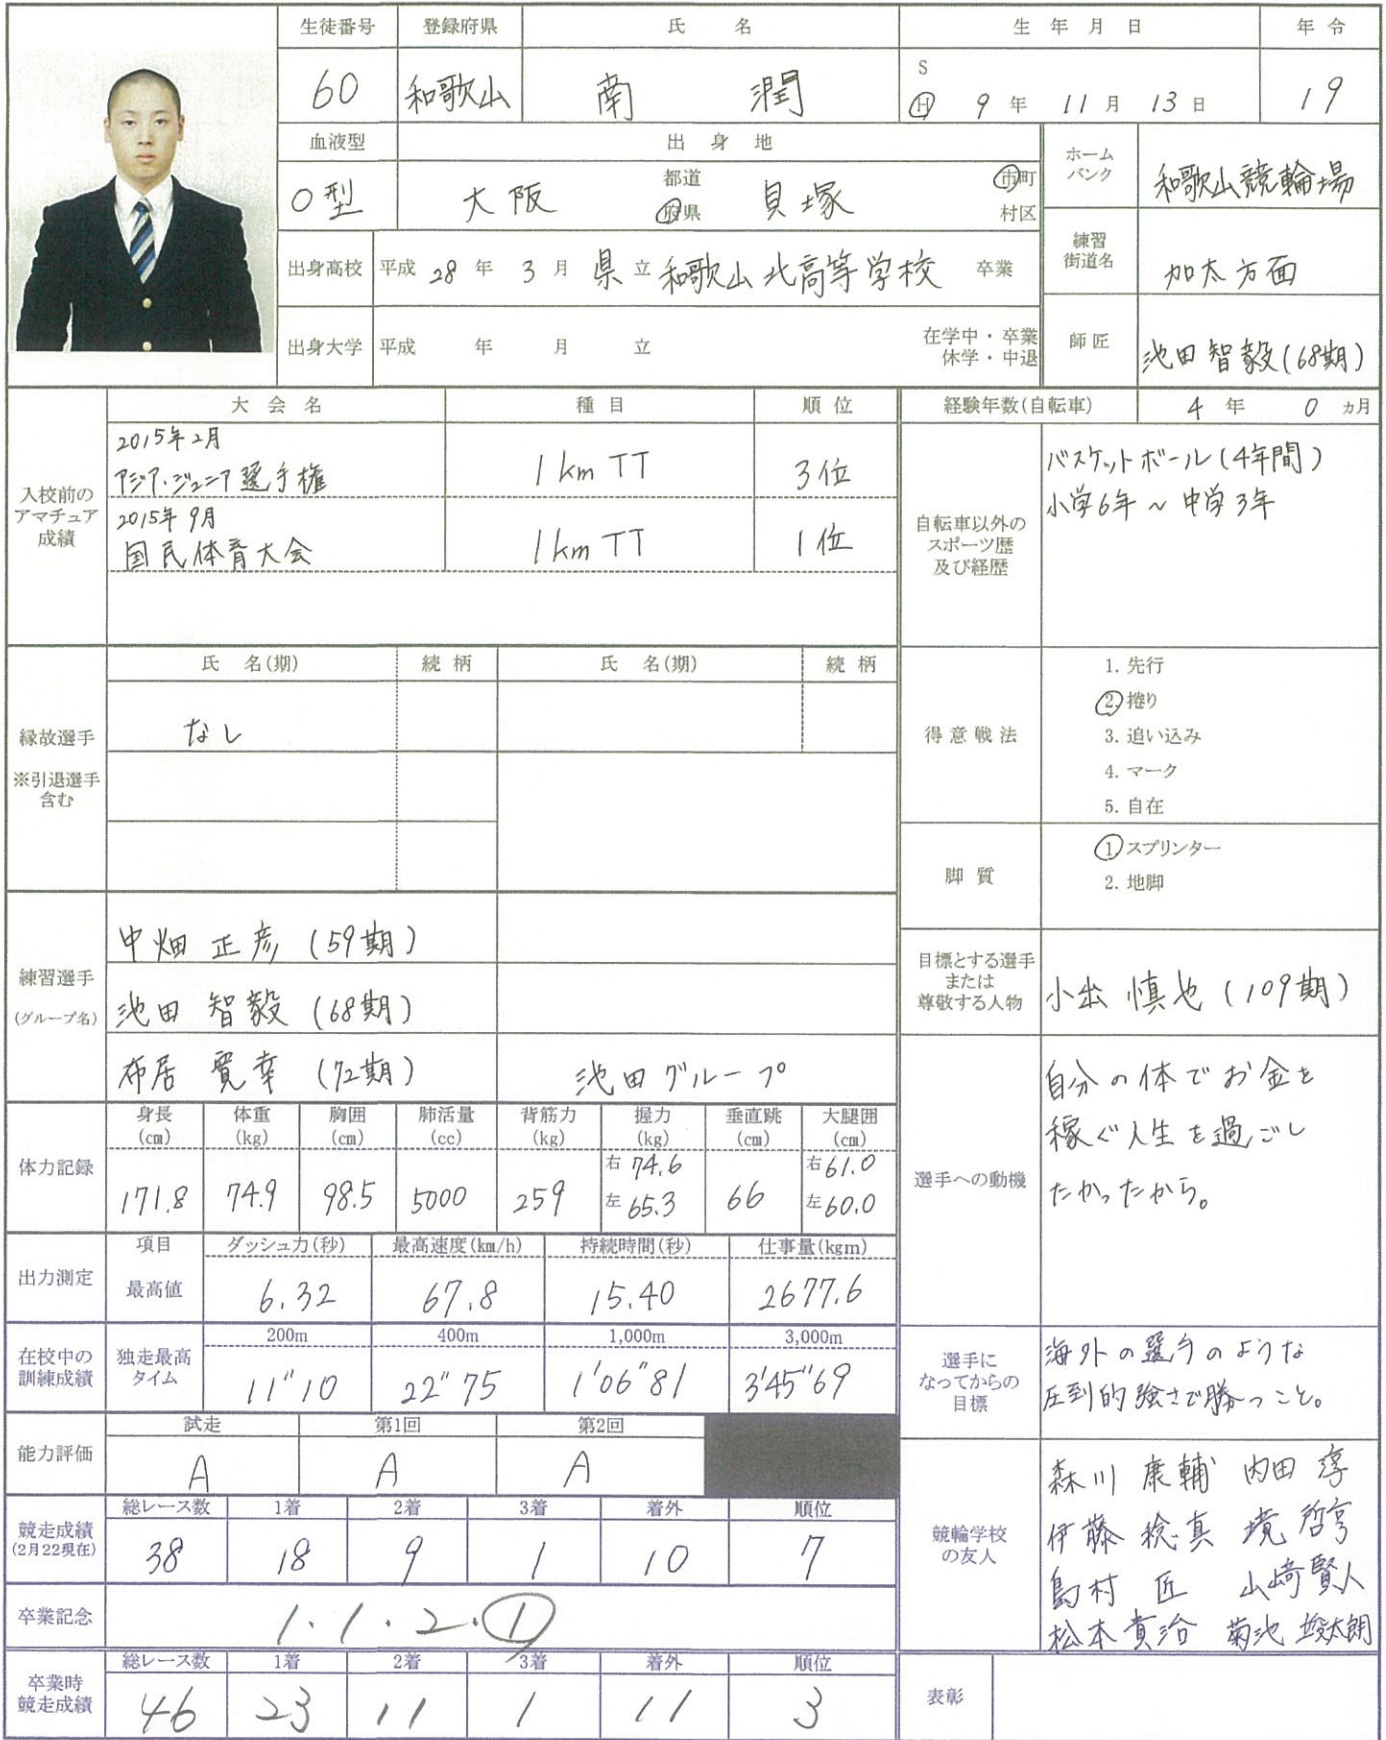 生徒番号 登録府県 氏名 生年月日 年令
60 和歌山 南 潤 S H 9年 11月 13日 19
血液型 出身地
O型 大阪 都道府県 貝塚 市町村区
ホームバンク 和歌山競輪場
出身高校 平成 28年 3月 県立 和歌山北高等学校 卒業
練習街道名 加太方面
出身大学 平成 年 月 立 在学中・卒業 休学・中退
師匠 池田 智毅(68期)
入校前のアマチュア成績
大会名 種目 順位
2015年2月
アジア・ジュニア選手権 1km TT 3位
2015年9月
国民体育大会 1km TT 1位
経験年数(自転車) 4年 0ヵ月
自転車以外のスポーツ歴及び経歴
バスケットボール(4年間)
小学6年~中学3年
縁故選手
※引退選手含む
氏名(期) 続柄 氏名(期) 続柄
なし
得意戦法
1. 先行
2. 捲り
3. 追い込み
4. マーク
5. 自在
脚質
1 スプリンター
2. 地脚
練習選手
(グループ名)
中畑 正彦(59期)
池田 智毅(68期)
布居 寛幸(72期) 池田グループ
目標とする選手または尊敬する人物
小出 慎也(109期)
選手への動機
自分の体でお金を
稼ぐ人生を過ごし
たかったから。
体力記録
身長(cm) 体重(kg) 胸囲(cm) 肺活量(cc) 背筋力(kg) 握力(kg) 垂直跳(cm) 大腿囲(cm)
171.8 74.9 98.5 5000 259 右74.6 左65.3 66 右61.0 左60.0
出力測定
項目 ダッシュ力(秒) 最高速度(km/h) 持続時間(秒) 仕事量(kgm)
最高値 6.32 67.8 15.40 2677.6
在校中の訓練成績
独走最高タイム
200m 400m 1,000m 3,000m
11"10 22"75 1'06"81 3'45"69
選手になってからの目標
海外の選手のような
圧到的強さで勝つこと。
能力評価
試走 第1回 第2回
A A A
競走成績
(2月22現在)
総レース数 1着 2着 3着 着外 順位
38 18 9 1 10 7
競輪学校の友人
森川 康輔 内田 淳
伊藤 稔真 境 啓亨
島村 匠 山崎賢人
松本貴治 菊池 竣太朗
卒業記念 1・1・2・①
卒業時競走成績
総レース数 1着 2着 3着 着外 順位
46 23 11 1 11 3
表彰